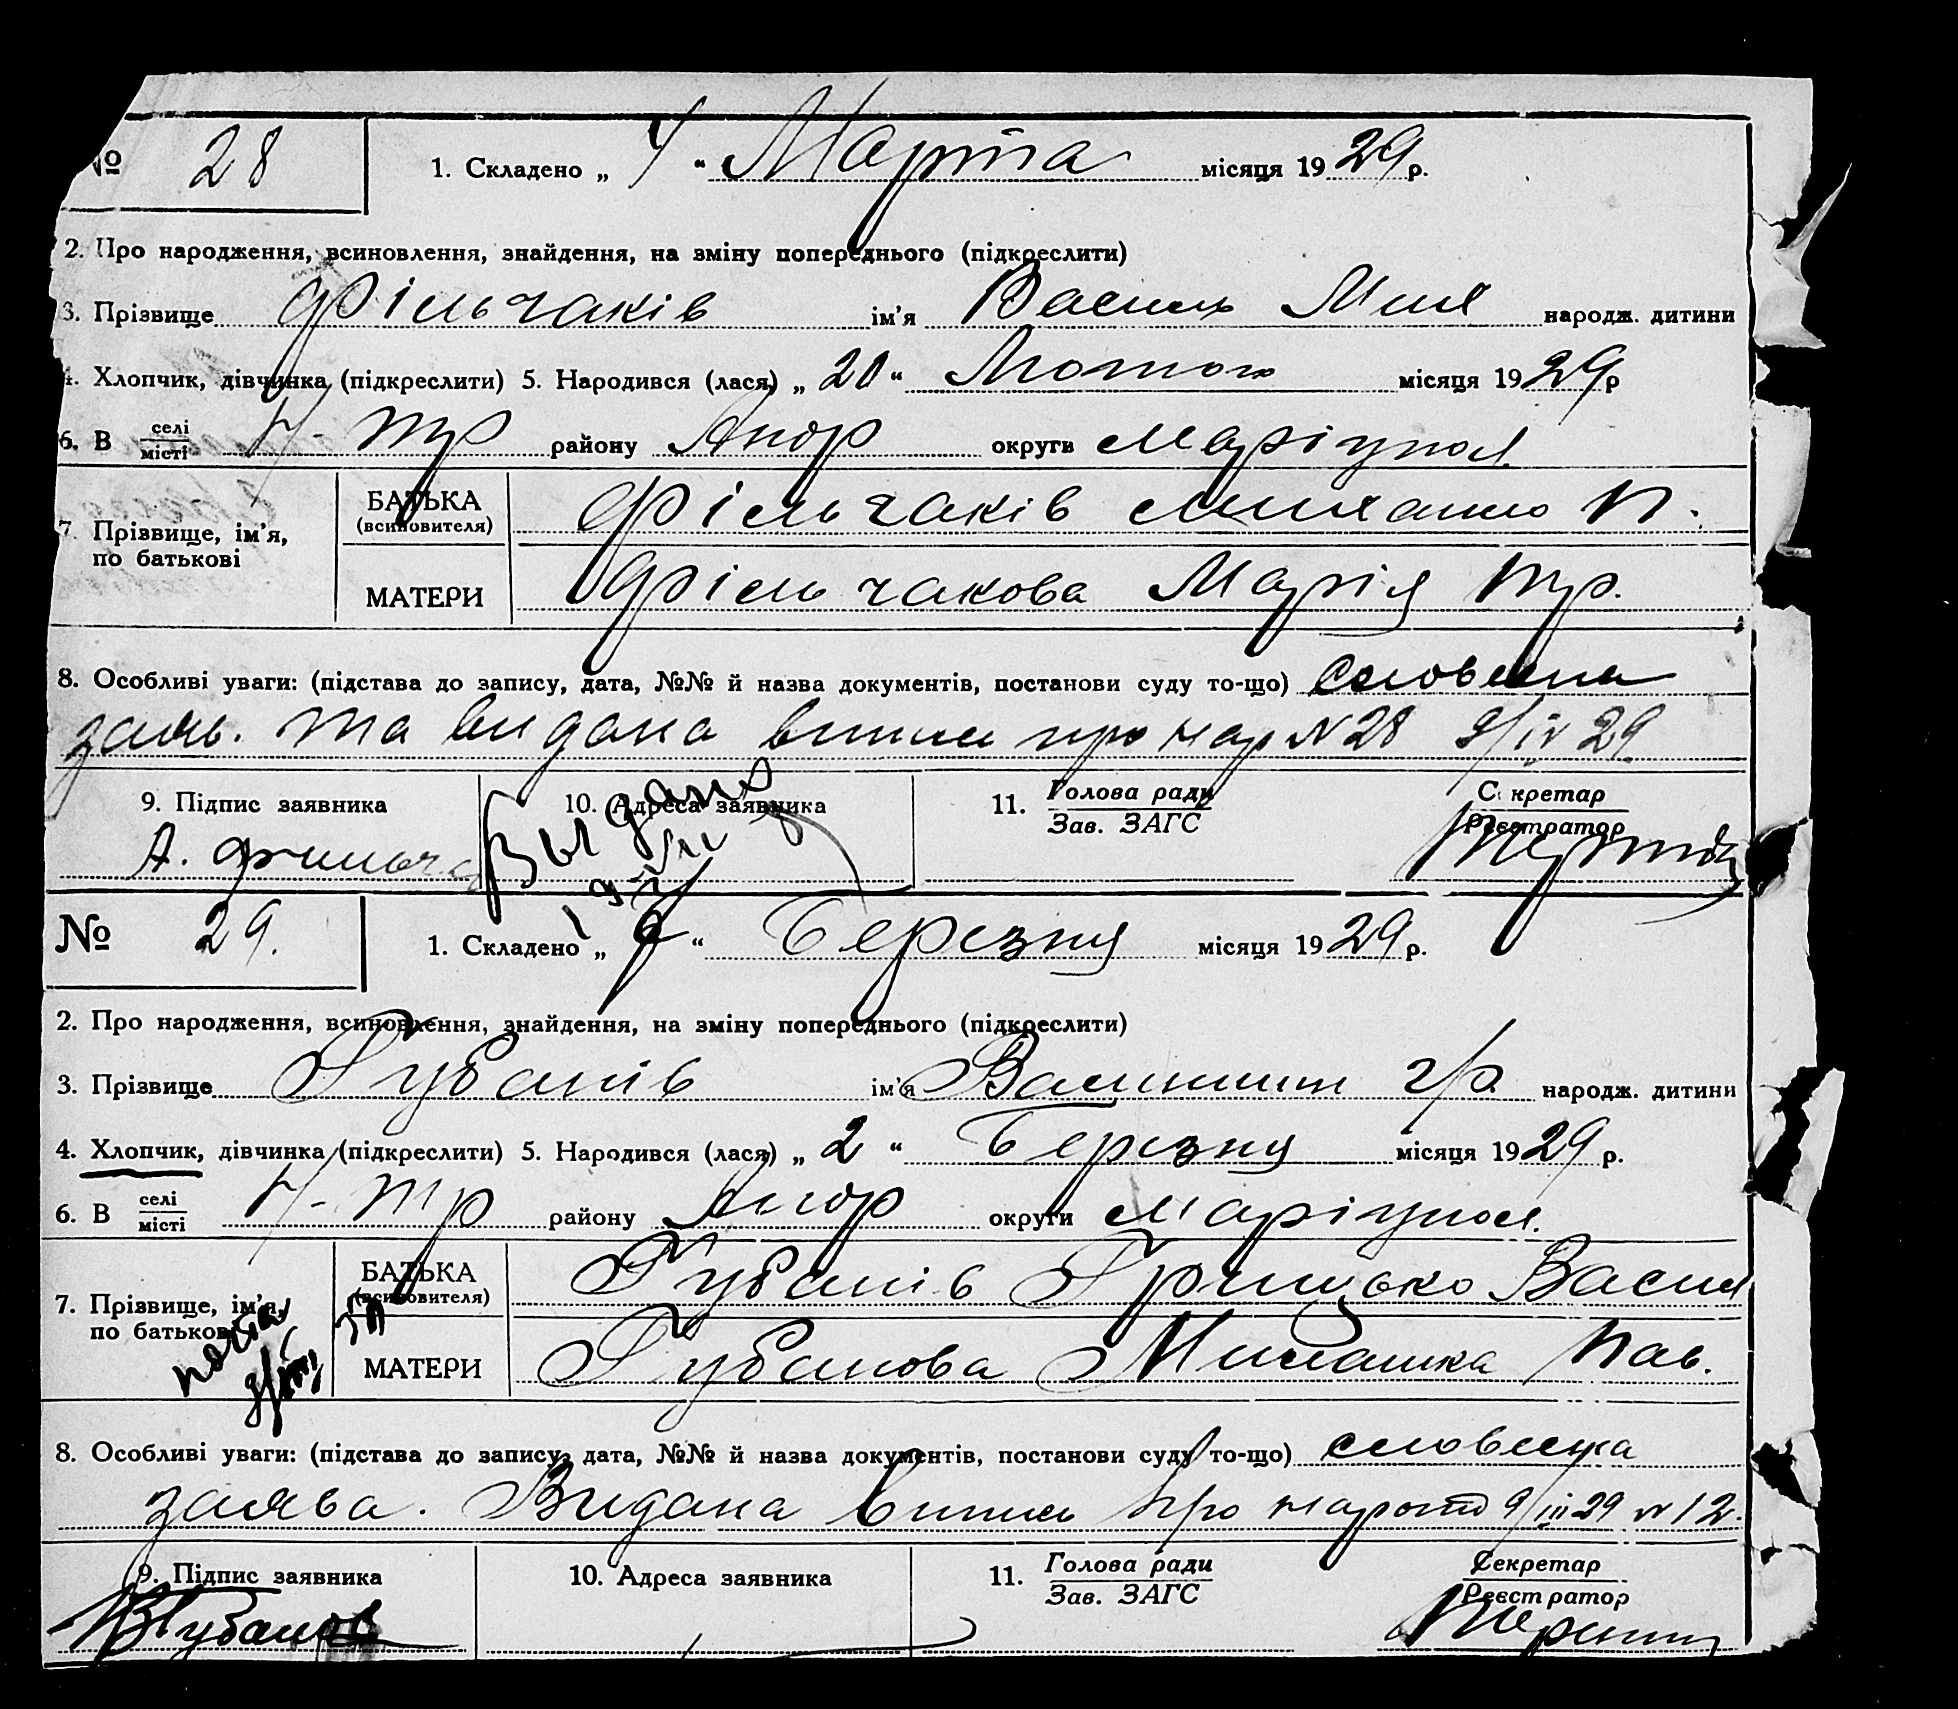 № 28 1. Складено „ 4 “ Марта місяця 1929 р.
2. Про народження, всиновлення, знайдення, на зміну попереднього (підкреслити)
3. Прізвище Фільчаків ім'я Василь Мих народж. дитини
4. Хлопчик, дівчинка (підкреслити) 5. Народився (лася) „ 20 “ Лютого місяця 1929 р
6. В селі/місті Н-Тр району Янор округи Маріупол.
7. Прізвище, ім'я, по батькові
БАТЬКА (всиновителя) Фільчаків Михайло П.
МАТЕРИ Фільчакова Марія Тр.
8. Особливі уваги: (підстава до запису, дата, №№ й назва документів, постанови суду то-що) Словесна
заяв. та видана випись про нар N 28 9/IV 29
9. Підпис заявника 10. Адреса заявника 11. Голова ради/Зав. ЗАГС Секретар/Реєстратор
А. Фильч
Выдано
№ 29. 1. Складено „ “ Березня місяця 1929 р.
2. Про народження, всиновлення, знайдення, на зміну попереднього (підкреслити)
3. Прізвище Губанів ім'я Валентин Гр. народж. дитини
4. Хлопчик, дівчинка (підкреслити) 5. Народився (лася) „ 2 “ Березня місяця 1929 р.
6. В селі/місті Н-Тр району Янор округи Маріупол.
7. Прізвище, ім'я, по батькові
БАТЬКА (всиновителя) Губанів Грицько Васил
МАТЕРИ Губанова Милашка Пав.
8. Особливі уваги: (підстава до запису, дата, №№ й назва документів, постанови суду то-що) словесна
заява. Видана випись про народж 9/III 29 N 12.
9. Підпис заявника 10. Адреса заявника 11. Голова ради/Зав. ЗАГС Секретар/Реєстратор
Губанов